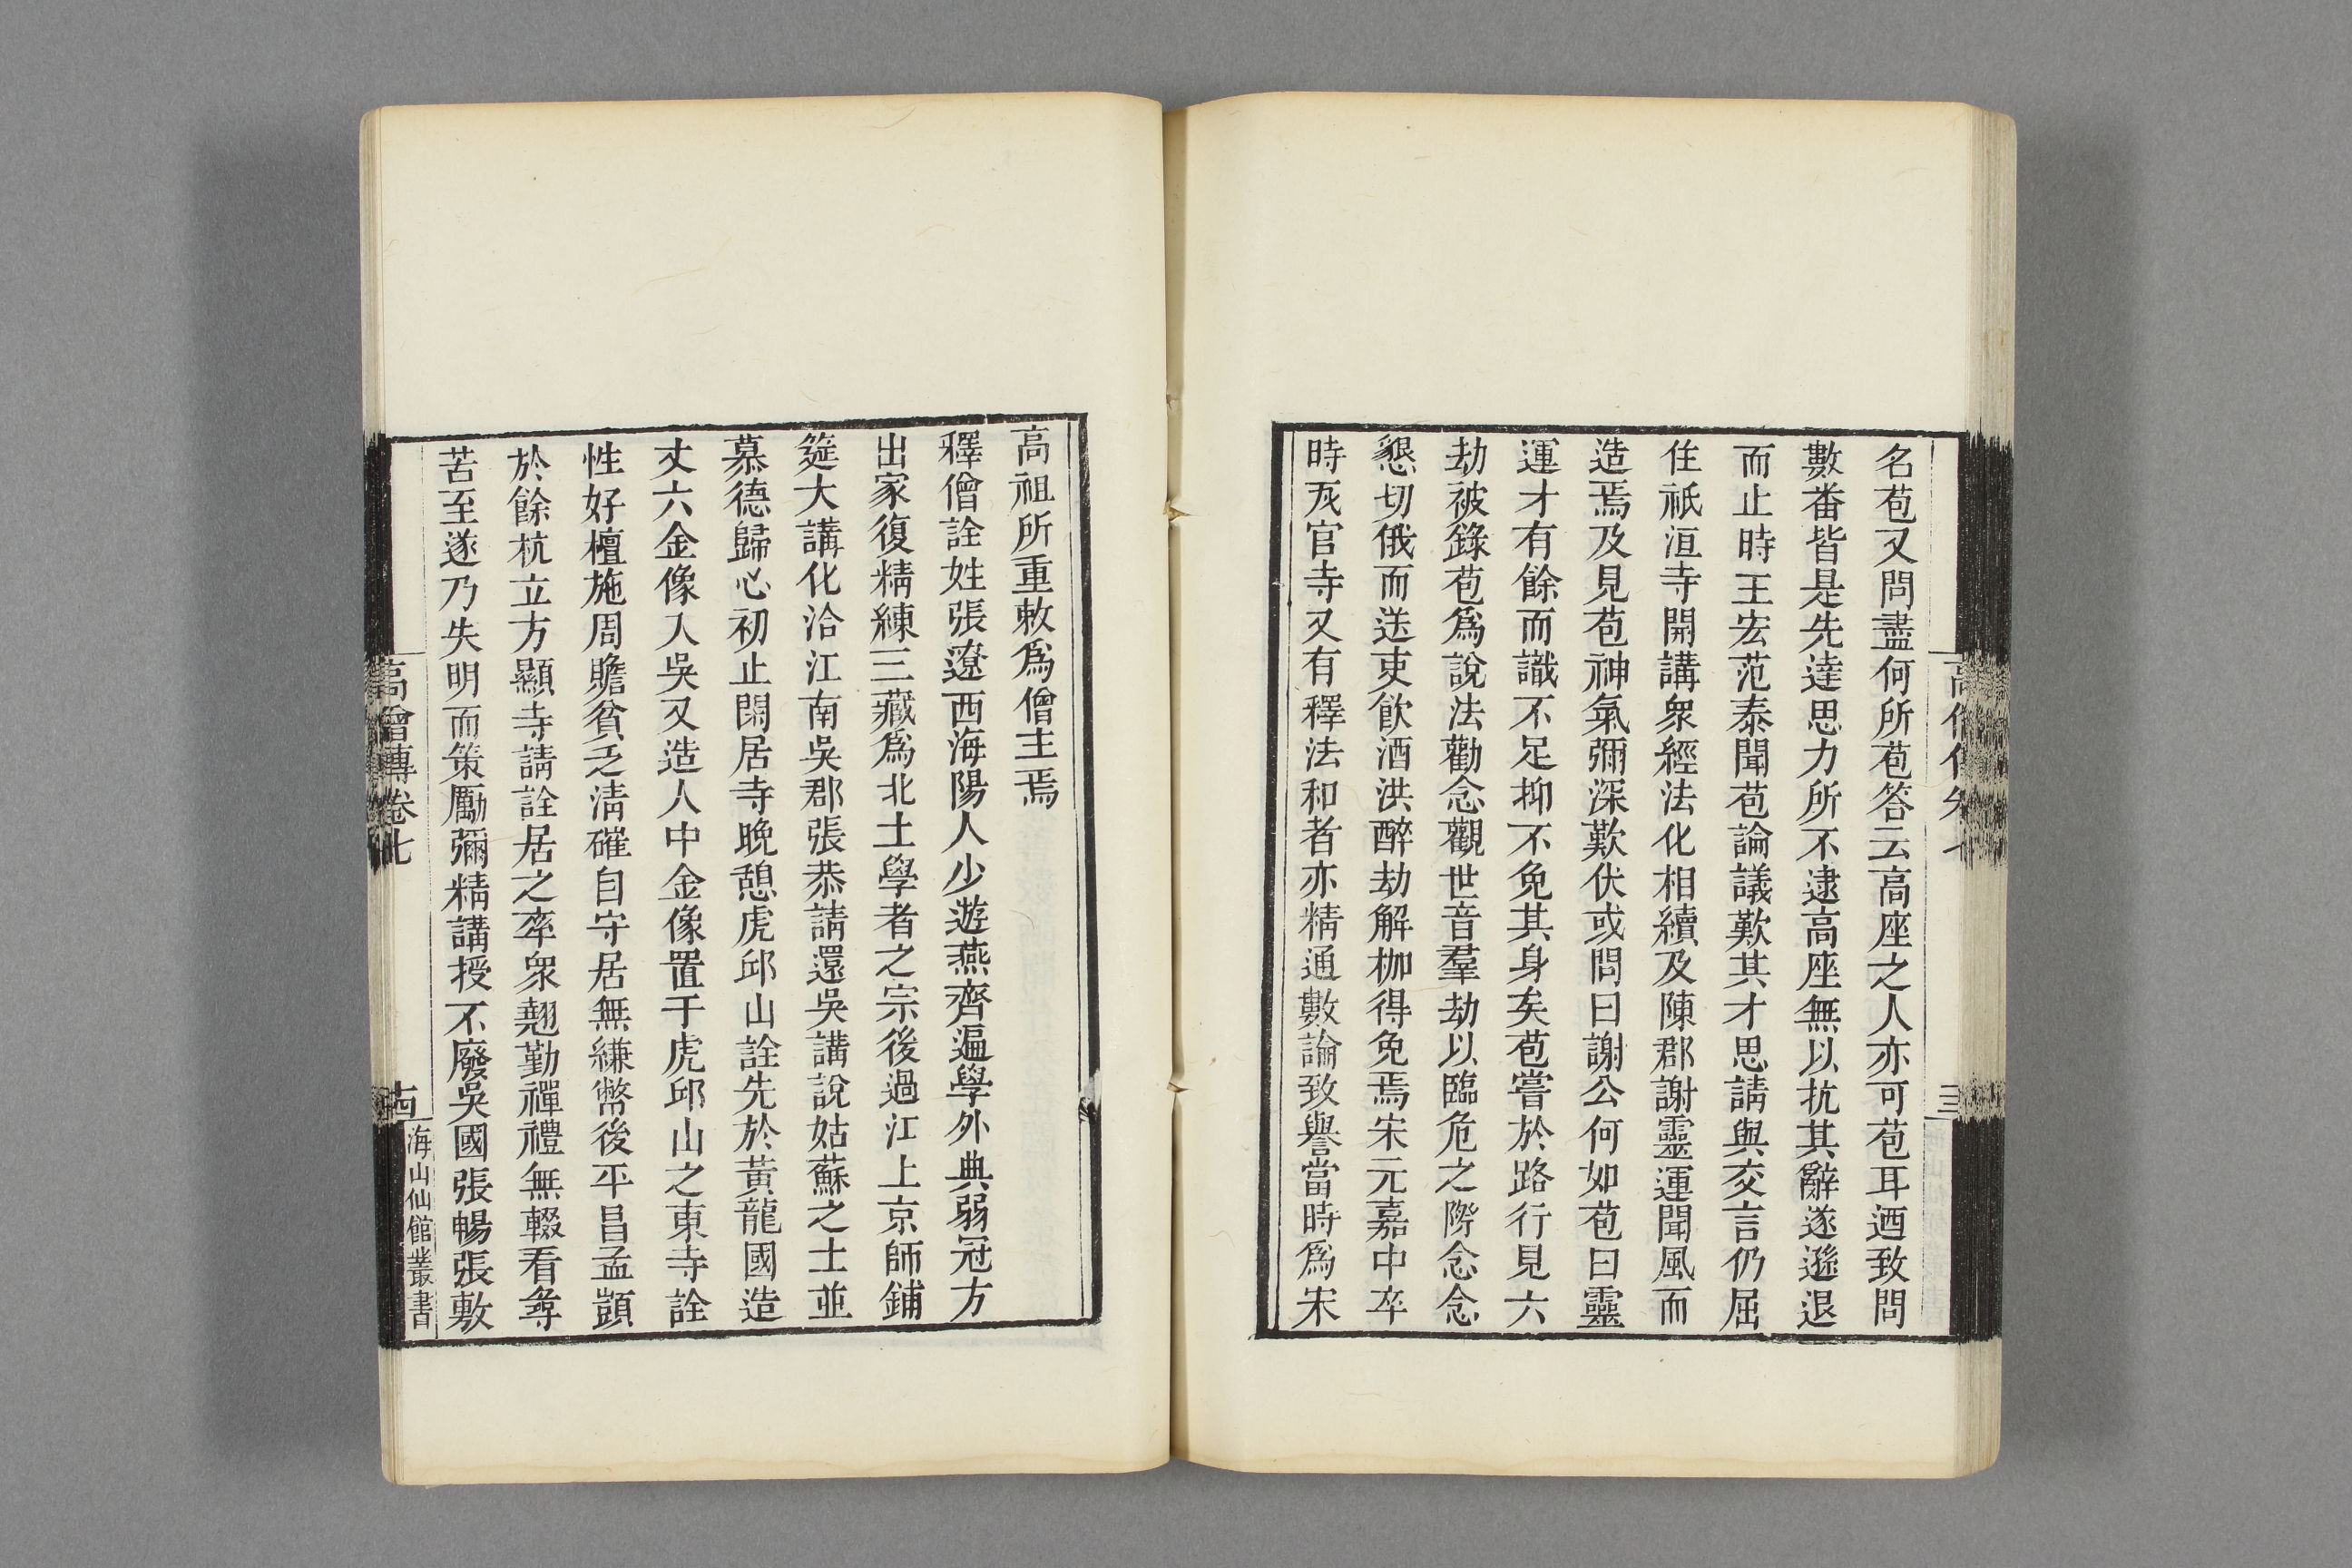 名苞又問盡何所苞答云高座之人亦可苞耳迺致問
數番皆是先達思力所不逮高座無以抗其辭遂遜退
而止時王宏范泰聞苞論議歎其才思請與交言仍屈
住祇洹寺開講眾經法化相續及陳郡謝靈運聞風而
造焉及見苞神氣彌深歎伏或問曰謝公何如苞曰靈
運才有餘而識不足抑不免其身矣苞嘗於路行見六
劫被錄苞為說法勸念觀世音羣劫以臨危之際念念
懇切俄而送吏飲酒洪醉劫解枷得免焉宋元嘉中卒
時瓦官寺又有釋法和者亦精通數論致譽當時為宋
高祖所重敕為僧主焉
釋僧詮姓張遼西海陽人少遊燕齊遍學外典弱冠方
出家復精練三藏為北土學者之宗後過江上京師鋪
筵大講化洽江南吳郡張恭請還吳講說姑蘇之士並
慕德歸心初止閑居寺晚憩虎邱山詮先於黃龍國造
丈六金像入吳又造人中金像置于虎邱山之東寺詮
性好檀施周贍貧乏清確自守居無縑幣後平昌孟顗
於餘杭立方顯寺請詮居之率眾翹勤禪禮無輟看尋
苦至遂乃失明而策厲彌精講授不廢吳國張暢張敷
高僧傳卷七
海山仙館叢書